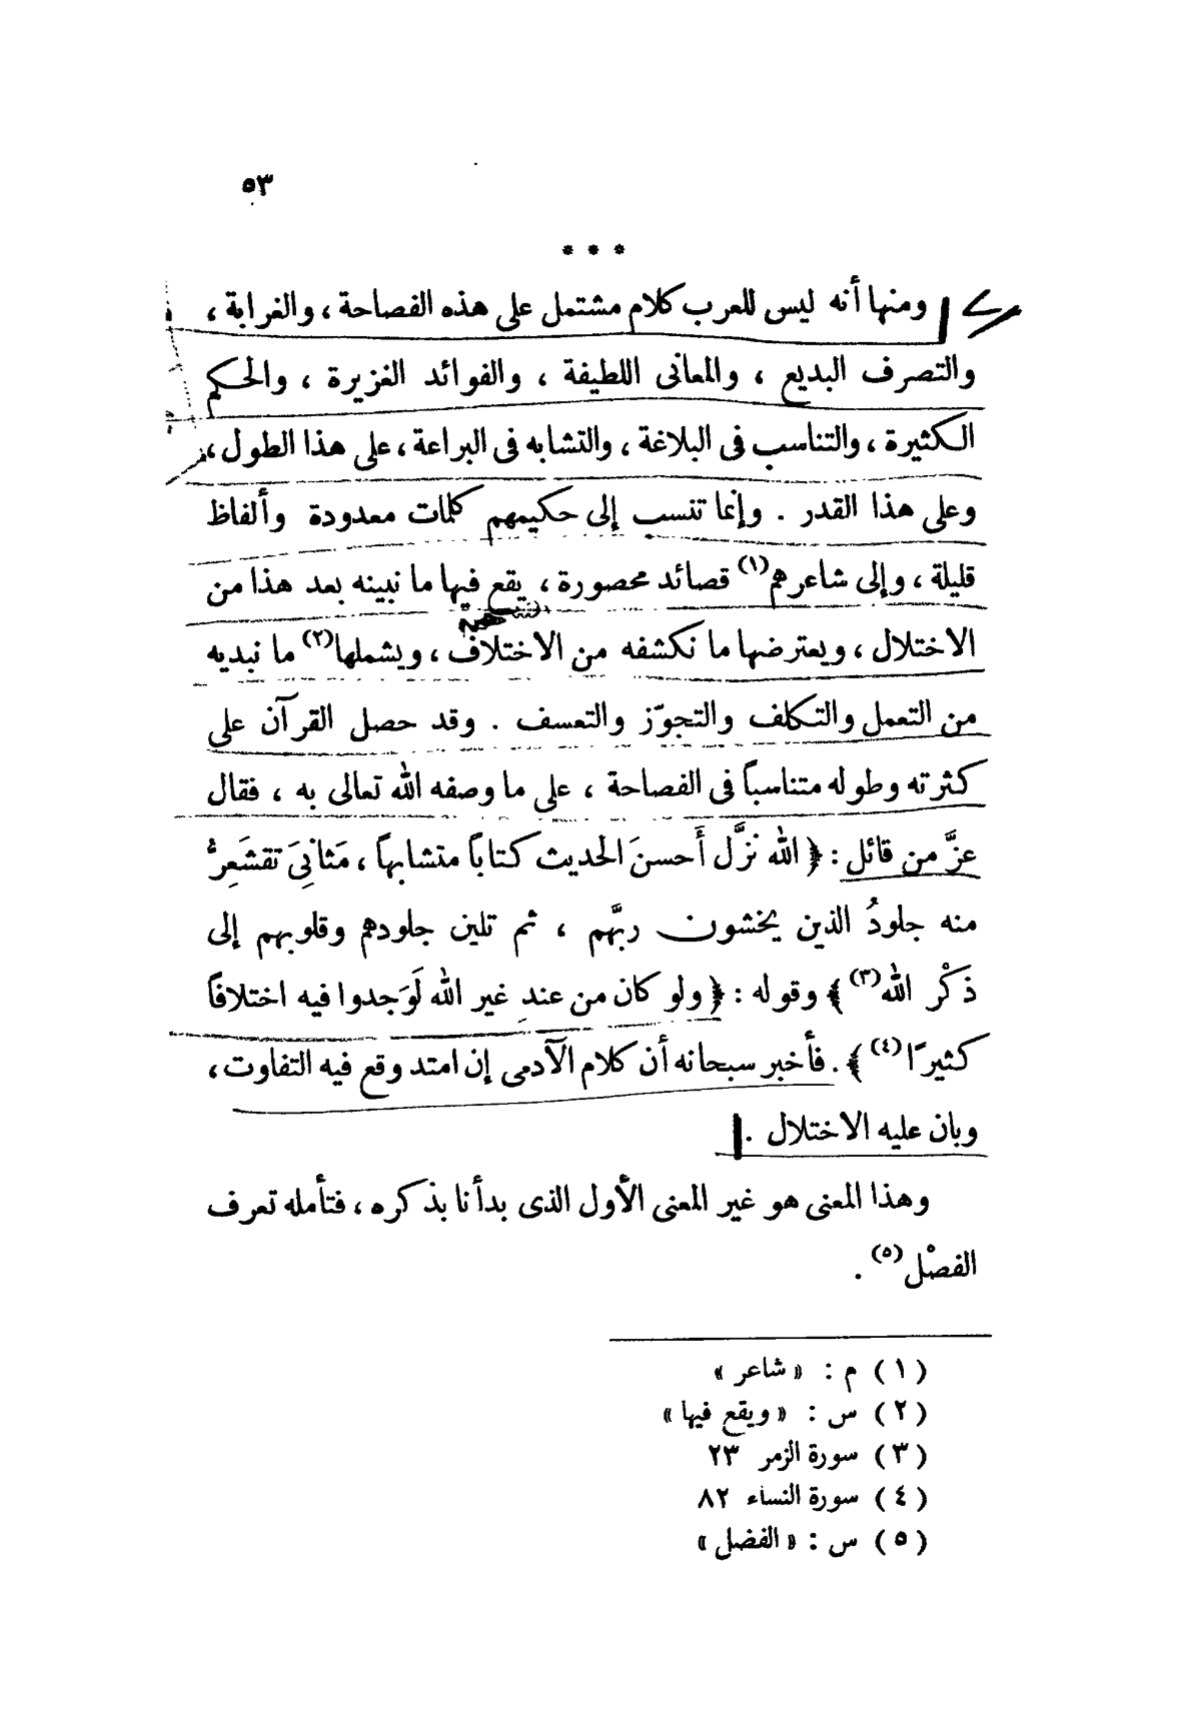 ٥٣
* * *
ومنها أنه ليس للعرب كلام مشتمل على هذه الفصاحة ، والغرابة ،
والتصرف البديع ، والمعانى اللطيفة ، والفوائد الغزيرة ، والحكم
الكثيرة ، والتناسب فى البلاغة ، والتشابه فى البراعة ، على هذا الطول ،
وعلى هذا القدر . وإنما تنسب إلى حكيمهم كلمات معدودة وألفاظ
قليلة ، وإلى شاعرهم(١) قصائد محصورة ، يقع فيها ما نبينه بعد هذا من
الاختلال ، ويعترضها ما نكشفه من الاختلاف ، ويشملها(٢) ما نبديه
من التعمل والتكلف والتجوّز والتعسف . وقد حصل القرآن على
كثرته وطوله متناسباً فى الفصاحة ، على ما وصفه الله تعالى به ، فقال
عزَّ من قائل : ﴿ الله نزَّل أَحسنَ الحديث كتاباً متشابهاً ، مَثانِىَ تقشَعِرُّ
منه جلودُ الذين يخشون ربَّهم ، ثم تلين جلودهم وقلوبهم إلى
ذَكْر الله(٣) ﴾ وقوله : ﴿ ولو كان من عندِ غير الله لَوَجدوا فيه اختلافاً
كثيرًا(٤) ﴾ . فأخبر سبحانه أن كلام الآدمى إن امتد وقع فيه التفاوت ،
وبان عليه الاختلال .
وهذا المعنى هو غير المعنى الأول الذى بدأنا بذكره ، فتأمله تعرف
الفصْل(٥) .
(١) م : « شاعر »
(٢) س : « ويقع فيها »
(٣) سورة الزمر ٢٣
(٤) سورة النساء ٨٢
(٥) س : « الفضل »